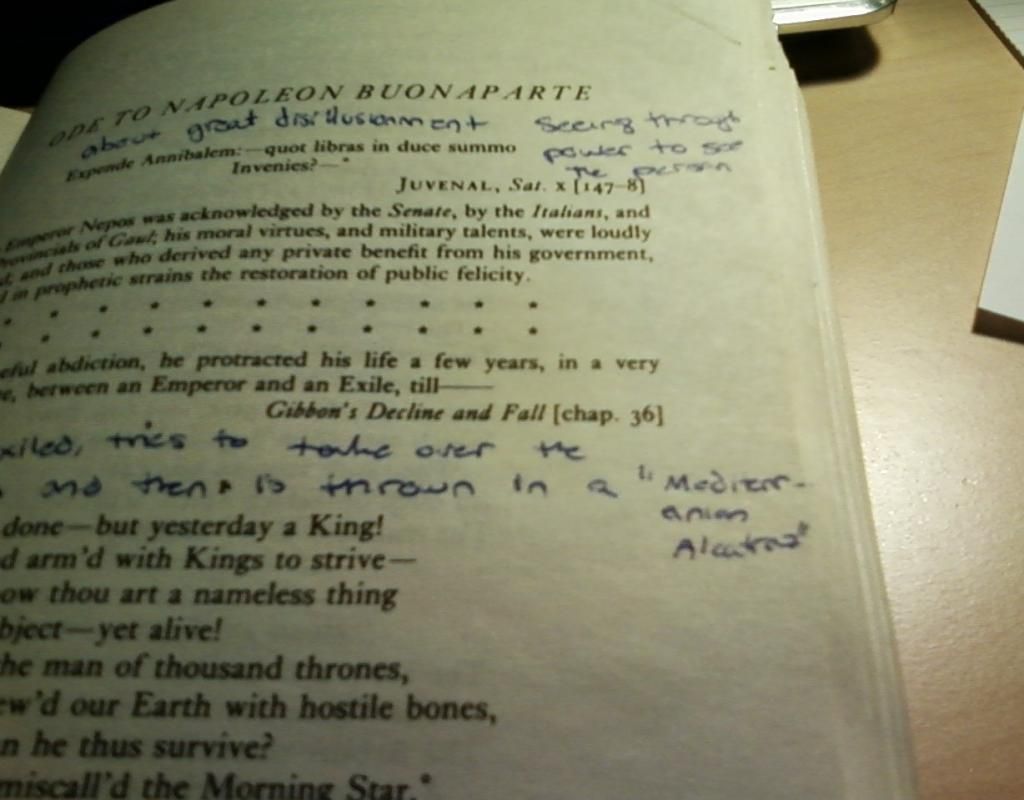 ODE TO NAPOLEON BUONAPARTE
about great disillusionment seeing through
power to see
the person
Expende Annibalem:—quot libras in duce summo
Invenies?—*
JUVENAL, Sat. x [147–8]
Emperor Nepos was acknowledged by the Senate, by the Italians, and
Provincials of Gaul; his moral virtues, and military talents, were loudly
d; and those who derived any private benefit from his government,
d in prophetic strains the restoration of public felicity.
* * * * * * * * * *
* * * * * * * * *
eful abdiction, he protracted his life a few years, in a very
e, between an Emperor and an Exile, till——
Gibbon's Decline and Fall [chap. 36]
xiled, tries to take over the
and then is thrown in a "Mediterr-
anian
Alcatraz"
done—but yesterday a King!
d arm'd with Kings to strive—
ow thou art a nameless thing
bject—yet alive!
he man of thousand thrones,
ew'd our Earth with hostile bones,
n he thus survive?
miscall'd the Morning Star,*